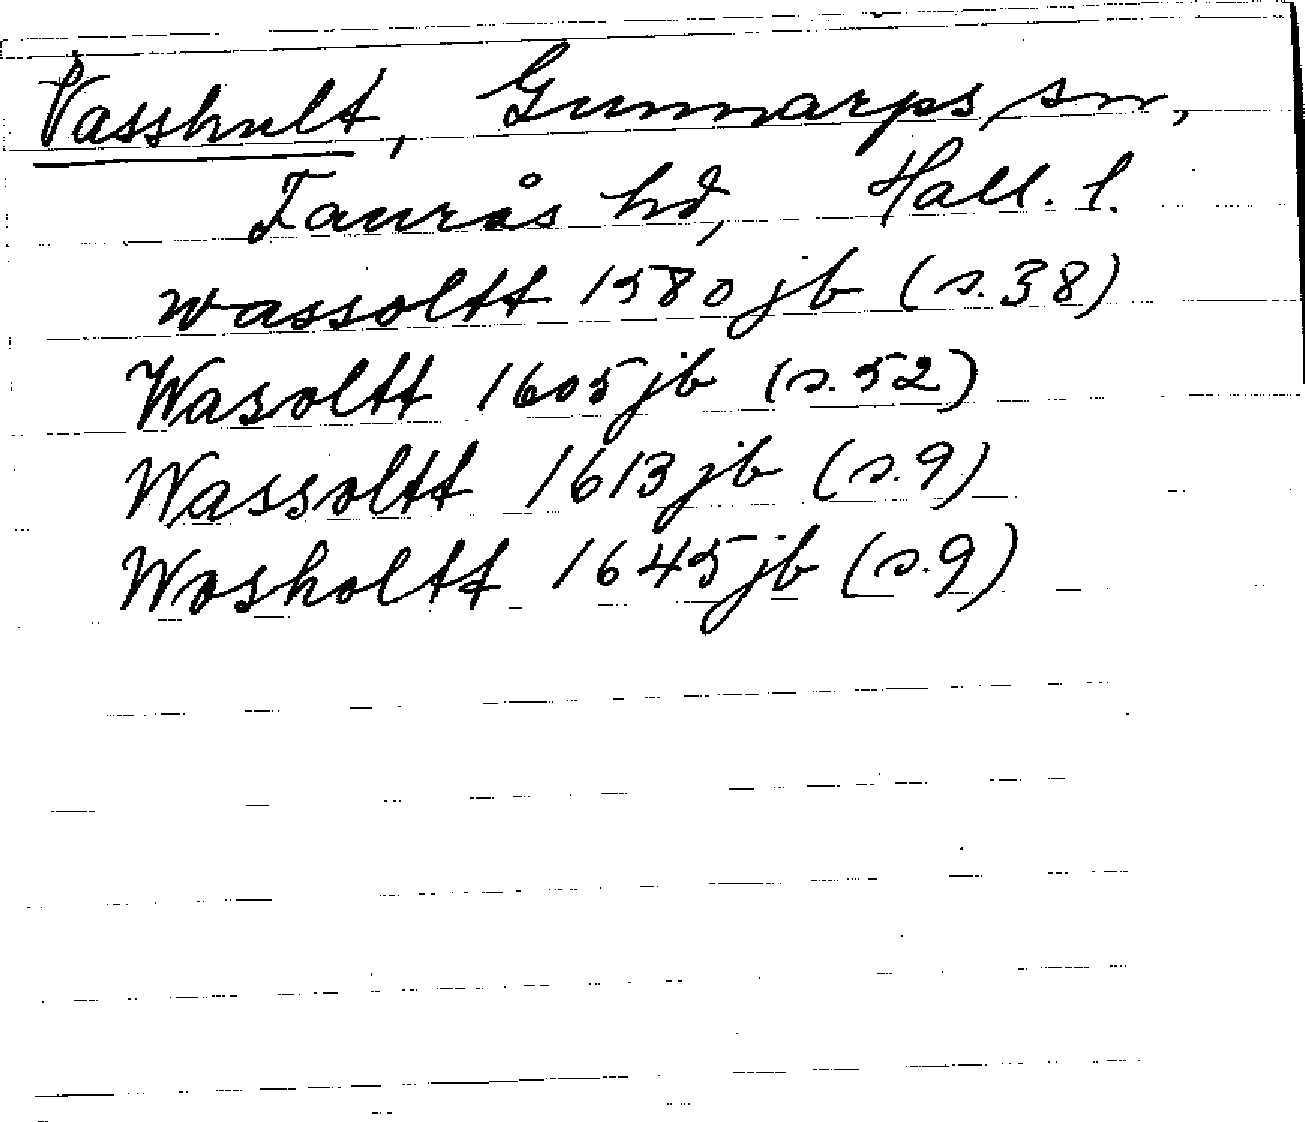 Vasshult, Gunnarps sn,
Faurås hd, Hall. l.
wassoltt 1580 jb (s. 38)
Wasoltt 1605 jb (s. 52)
Wassoltt 1613 jb (s. 9)
Wosholtt 1645 jb (s. 9)